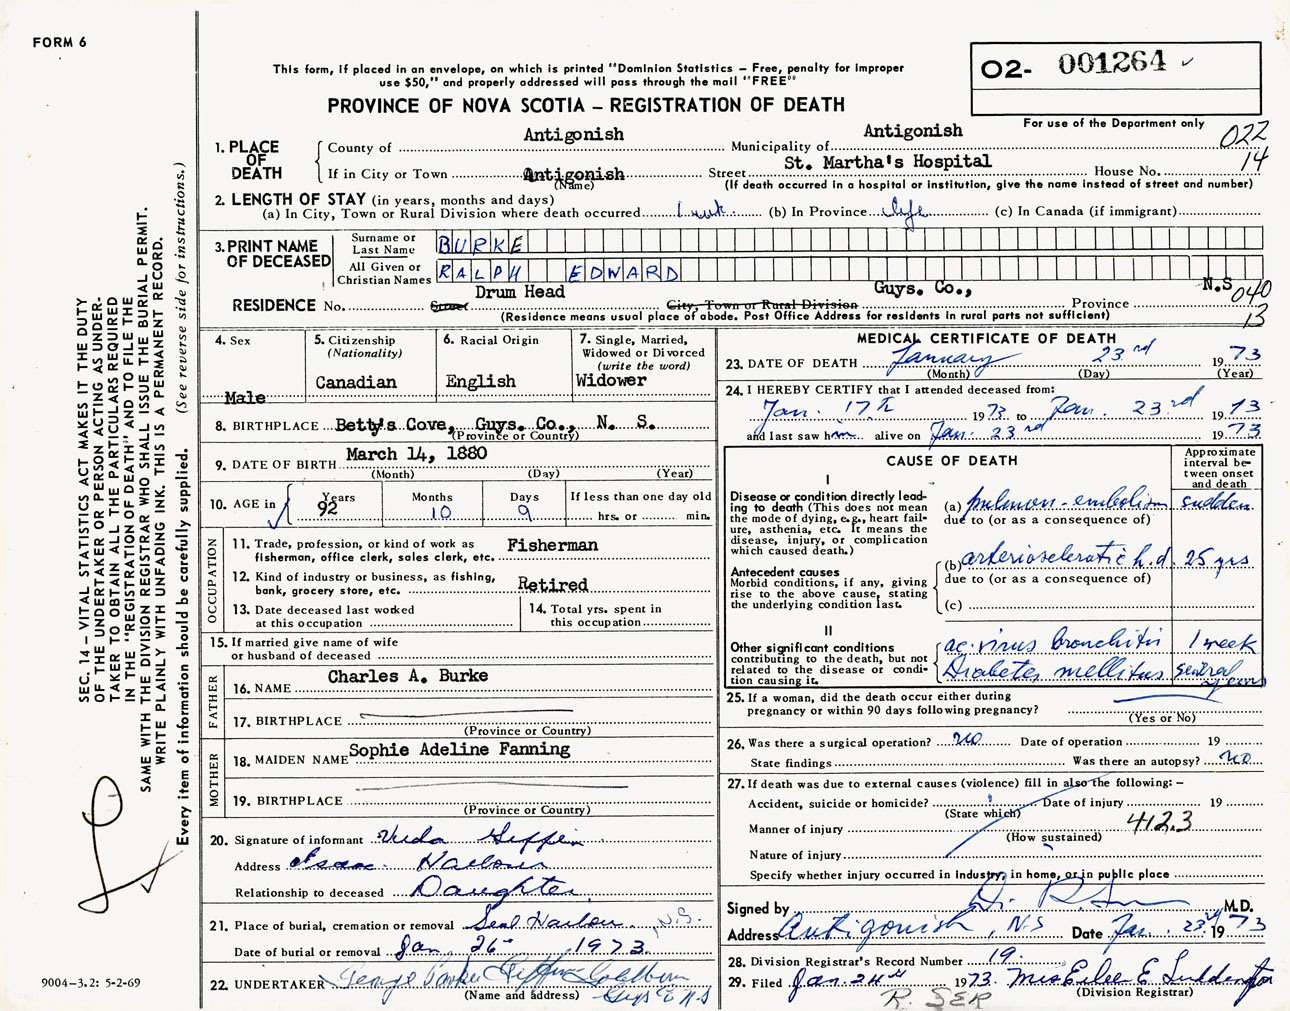 FORM 6
This form, if placed in an envelope, on which is printed "Dominion Statistics – Free, penalty for improper
use $50," and properly addressed will pass through the mail "FREE"
O2- 001264
PROVINCE OF NOVA SCOTIA – REGISTRATION OF DEATH
For use of the Department only
022
14
1. PLACE OF DEATH
County of Antigonish Municipality of Antigonish
If in City or Town Antigonish Street St. Martha's Hospital House No.
(Name) (If death occurred in a hospital or institution, give the name instead of street and number)
2. LENGTH OF STAY (in years, months and days)
(a) In City, Town or Rural Division where death occurred 1 wk. (b) In Province Life (c) In Canada (if immigrant)
3. PRINT NAME OF DECEASED
Surname or Last Name BURKE
All Given or Christian Names RALPH EDWARD
RESIDENCE No. Drum Head Street City, Town or Rural Division Guys. Co., Province N.S
(Residence means usual place of abode. Post Office Address for residents in rural parts not sufficient)
040
13
4. Sex Male
5. Citizenship (Nationality) Canadian
6. Racial Origin English
7. Single, Married, Widowed or Divorced (write the word) Widower
8. BIRTHPLACE Betty's Cove, Guys. Co., N. S.
(Province or Country)
9. DATE OF BIRTH March 14, 1880
(Month) (Day) (Year)
10. AGE in Years 92 Months 10 Days 9 If less than one day old hrs. or min.
OCCUPATION
11. Trade, profession, or kind of work as fisherman, office clerk, sales clerk, etc. Fisherman
12. Kind of industry or business, as fishing, bank, grocery store, etc. Retired
13. Date deceased last worked at this occupation
14. Total yrs. spent in this occupation
15. If married give name of wife or husband of deceased
FATHER
16. NAME Charles A. Burke
17. BIRTHPLACE
(Province or Country)
MOTHER
18. MAIDEN NAME Sophie Adeline Fanning
19. BIRTHPLACE
(Province or Country)
20. Signature of informant Giffin
Address Isaac Harbour
Relationship to deceased Daughter
21. Place of burial, cremation or removal Seal Harbour, N.S.
Date of burial or removal Jan. 26 1973
22. UNDERTAKER George Parker Giffin Goldboro
(Name and address) Guys Co N S
MEDICAL CERTIFICATE OF DEATH
23. DATE OF DEATH January 23rd 1973
(Month) (Day) (Year)
24. I HEREBY CERTIFY that I attended deceased from:
Jan. 17th 1973 to Jan. 23rd 1973
and last saw him alive on Jan. 23rd 1973
CAUSE OF DEATH
Approximate interval between onset and death
I
Disease or condition directly leading to death (This does not mean the mode of dying, e.g., heart failure, asthenia, etc. It means the disease, injury, or complication which caused death.)
(a) pulmon. embolism sudden
due to (or as a consequence of)
Antecedent causes
Morbid conditions, if any, giving rise to the above cause, stating the underlying condition last.
(b) arteriosclerotic h.d. 25 yrs
due to (or as a consequence of)
(c)
II
Other significant conditions contributing to the death, but not related to the disease or condition causing it.
ac. virus bronchitis 1 week
Diabetes mellitus several years
25. If a woman, did the death occur either during pregnancy or within 90 days following pregnancy?
(Yes or No)
26. Was there a surgical operation? no Date of operation 19
State findings Was there an autopsy? no
27. If death was due to external causes (violence) fill in also the following: –
Accident, suicide or homicide? Date of injury 19
(State which)
Manner of injury 412.3
(How sustained)
Nature of injury
Specify whether injury occurred in Industry, in home, or in public place
Signed by Dr. M.D.
Address Antigonish, N.S Date Jan. 23rd 1973
28. Division Registrar's Record Number 19
29. Filed Jan. 24th 1973 E.
(Division Registrar)
SEC. 14 – VITAL STATISTICS ACT MAKES IT THE DUTY
OF THE UNDERTAKER OR PERSON ACTING AS UNDER-
TAKER TO OBTAIN ALL THE PARTICULARS REQUIRED
IN THE "REGISTRATION OF DEATH" AND TO FILE THE
SAME WITH THE DIVISION REGISTRAR WHO SHALL ISSUE THE BURIAL PERMIT.
WRITE PLAINLY WITH UNFADING INK. THIS IS A PERMANENT RECORD.
Every item of information should be carefully supplied. (See reverse side for instructions.)
9004–3.2: 5-2-69